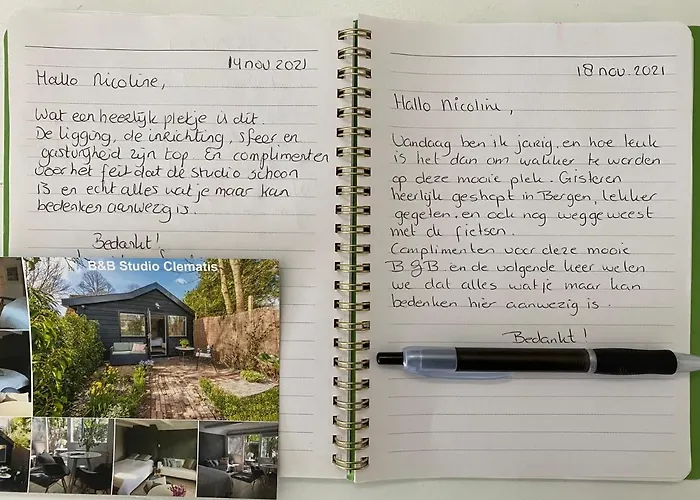 14 nov 2021
Hallo Nicoline,
Wat een heerlijk plekje is dit.
De ligging, de inrichting, sfeer en
gastvrijheid zijn top. En complimenten
voor het feit dat de studio schoon
is en echt alles wat je maar kan
bedenken aanwezig is.
Bedankt!
B&B Studio Clematis
18 nov. 2021
Hallo Nicoline,
Vandaag ben ik jarig, en hoe leuk
is het dan om wakker te worden
op deze mooie plek. Gisteren
heerlijk geshopt in Bergen, lekker
gegeten, en ook nog weggeweest
met de fietsen.
Complimenten voor deze mooie
B&B en de volgende keer weten
we dat alles wat je maar kan
bedenken hier aanwezig is.
Bedankt!